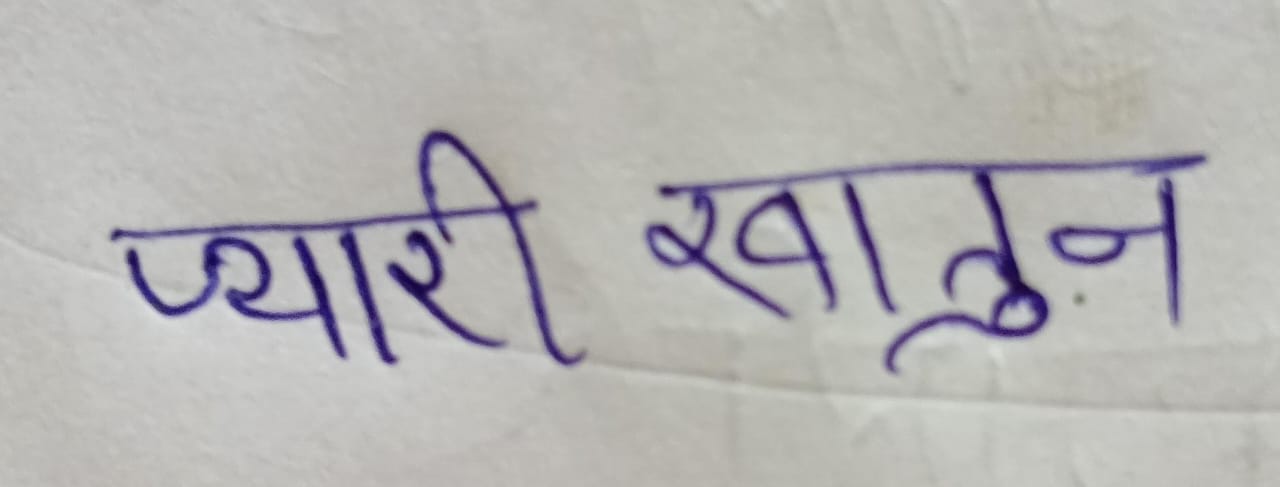 प्यारी खातुन